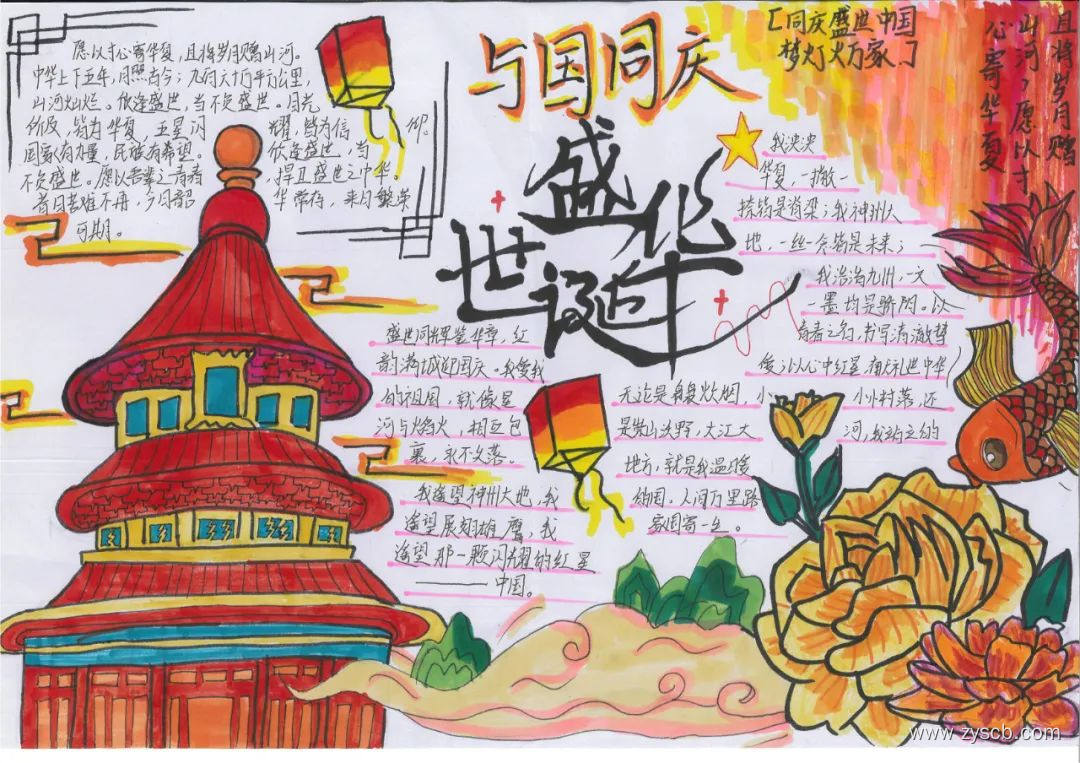 愿以寸心寄华夏,且将岁月赠山河。
中华上下五年,月照古今;九州六十万平方公里,
山河灿烂。欣逢盛世,当不负盛世。月光
所及,皆为华夏,五星闪 耀,皆为信仰。
国家有力量,民族有希望。 欣逢盛世,当
不负盛世。愿以吾辈之青春 捍卫盛世之中华。
昔日苦难不再,今日韶 华常在,来日繁荣
可期。
与国同庆
盛世华诞
[同庆盛世中国
梦灯火万家]
且将岁月赠
山河,愿以寸
心寄华夏
我泱泱
华夏,一撇一
捺皆是脊梁;我神州大
地,一丝一念皆是未来;
我浩浩九州,一文
一墨均是骄阳。以
青春之名,书写清澈梦
想;以心中红星,献礼世中华
盛世同辉鉴华章,红
韵满城迎国庆。我爱我
的祖国,就像星
河与焰火,相互包
裹,永不坠落。
我遥望神州大地,我
遥望展翅雄鹰,我
遥望那一颗闪耀的红星
——中国。
无论是袅袅炊烟,小 小小村落,还
是崇山峻野,大江大 河,我站立的
地方,就是我温暖
的国。人间万里路
家国寄一生。
www.zyscb.com